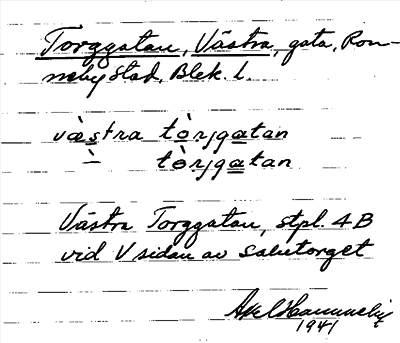 Torggatan, Västra, gata, Ron-
neby stad, Blek. l.
væ̀stra tòrjgatan
tòrjgatan
Västra Torggatan, stpl. 4B
vid V sidan av salutorget
Axel
1941